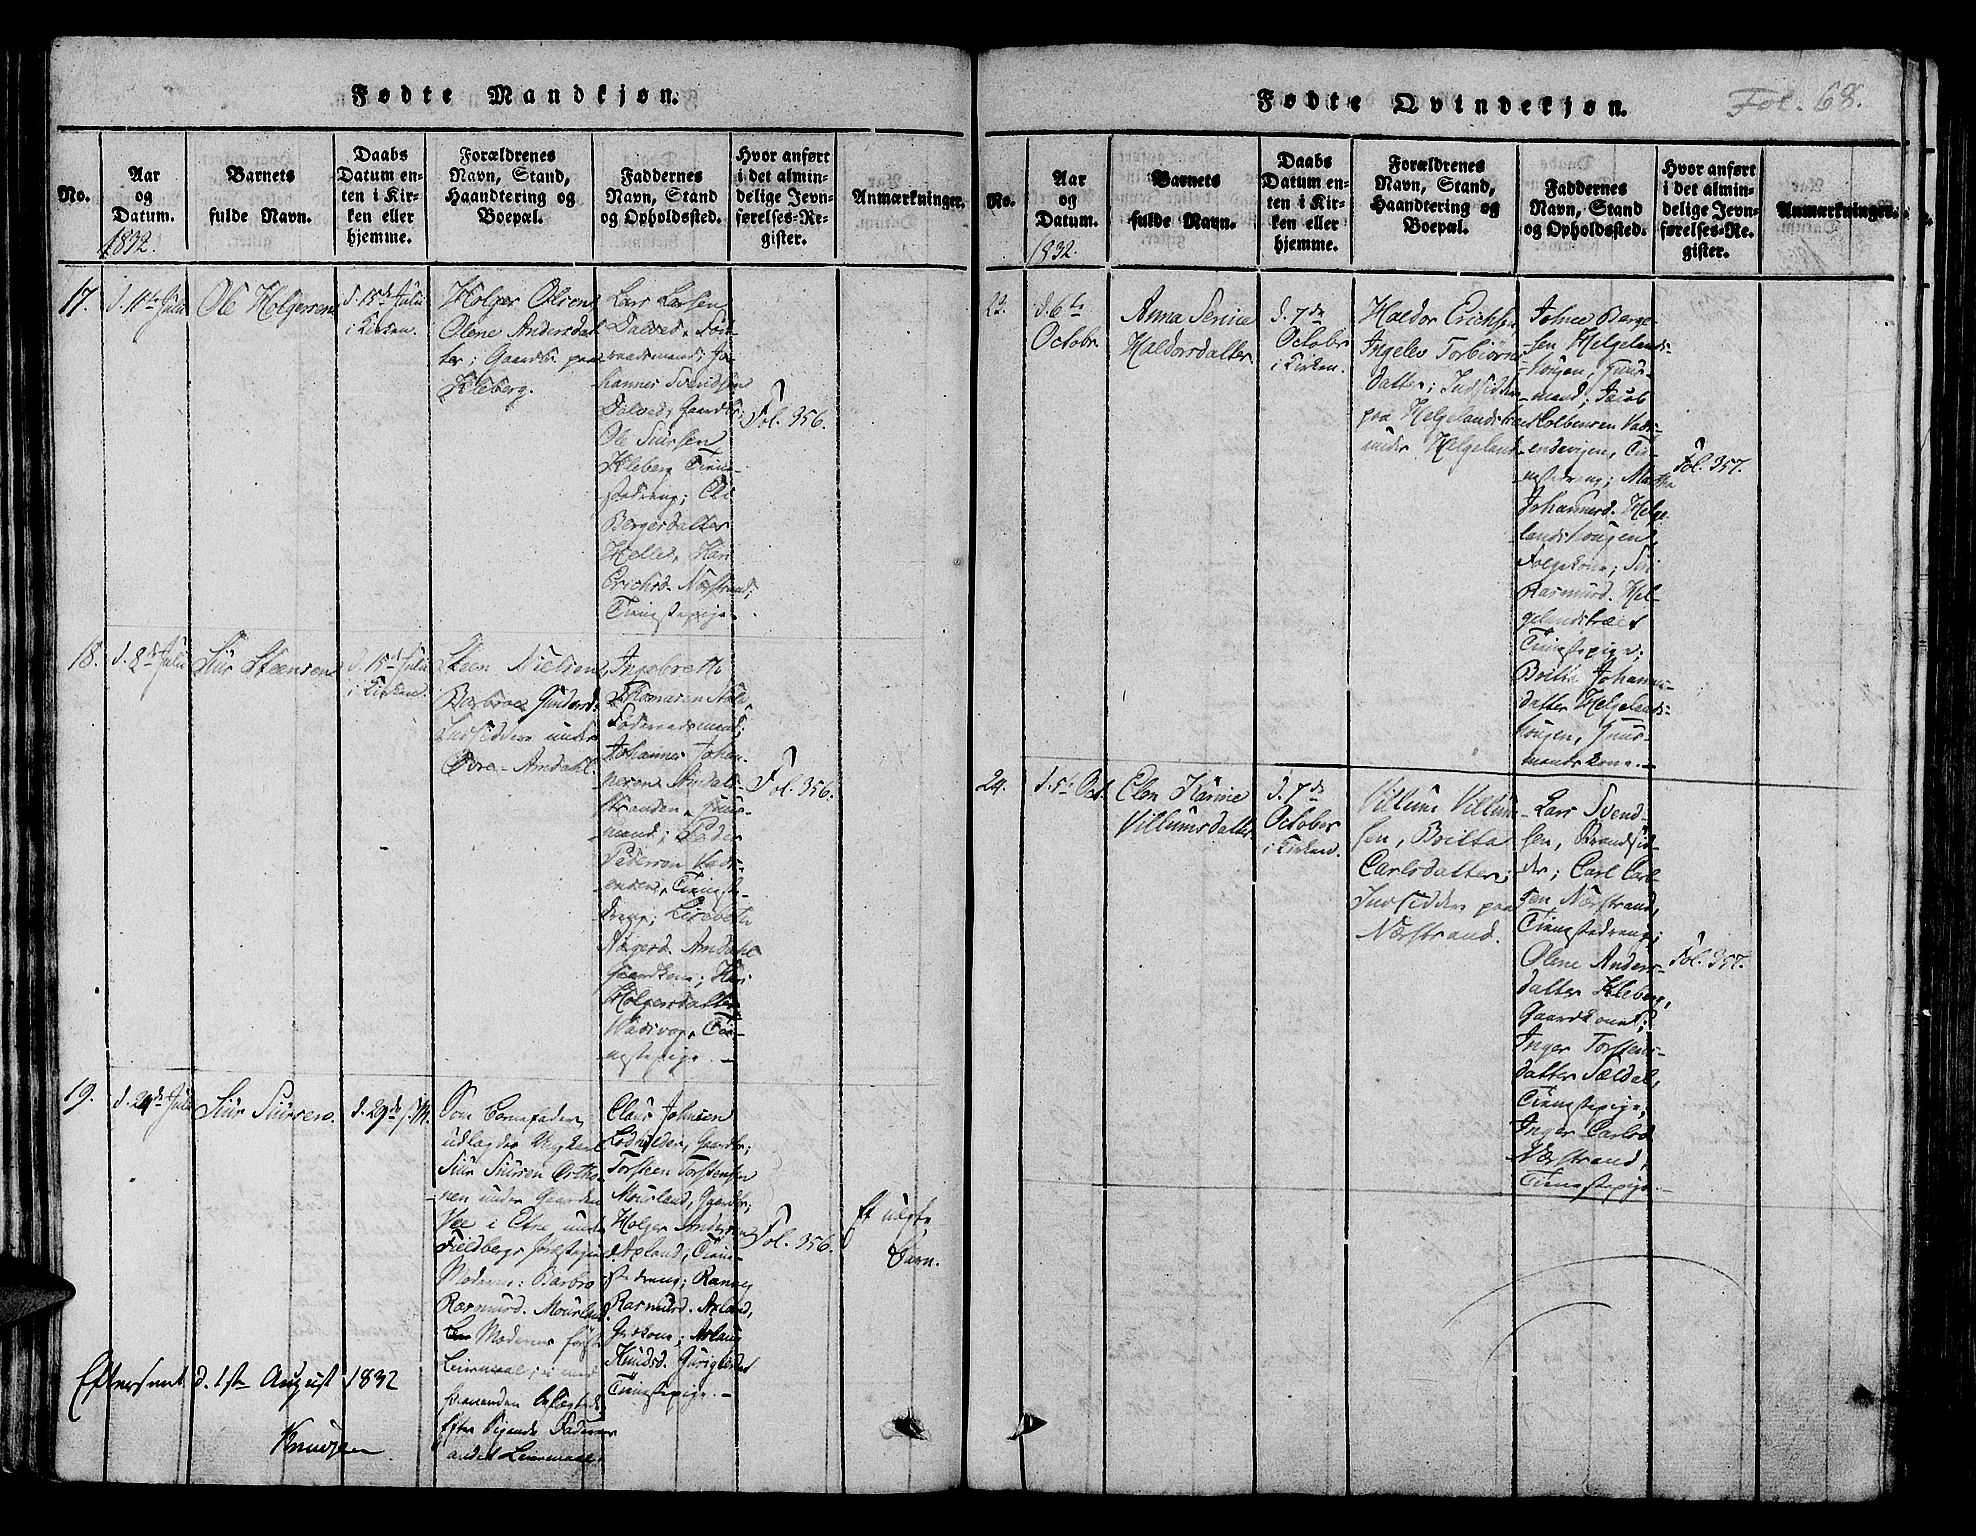 Fødte Mandkjøn.
No.
Aar
og
Datum.
1832.
Barnets
fulde Navn.
Daabs
Datum en-
ten i Kir-
ken eller
hjemme.
Forældrenes
Navn, Stand,
Haandtering og
Boepæl.
Faddernes
Navn, Stand
og Opholdssted.
Hvor anført
i det almin-
delige Jevn-
førelses-Re-
gister.
Anmærkninger.
17.
d. 11te Julii
Ole Holgersen
d. 15de Julii
i Kirken.
Holger Olsen
Olene Andersdat-
ter; Gaardb. paa
Kleberg.
Lars Larsen
Dalved,
Jo-
hannes Svendsen
Dalved, Gaardb.;
Ole Siursen
Kleberg Tiene-
stedreng;
Bergesdatter
Helled, Kari
Erichsd. Nærstrand;
Tienestepige.
Fol. 356.
18.
d. 8de Julii
Siur Steensen
d. 15de Julii
i Kirken.
Steen Nielsen,
Barbroe Gundersd.
Indsiddere under
Øvre-Amdahl.
Ingebreth
Thomasen
Johannes Johan-
nesen Amdals-
stranden, Huus-
mand; Peder
Pedersen Vads-
enden, Tieneste-
dreng; Lisebeth
Aagesd. Amdahl
Gaardkone; Kari
Holgersdatter
Tien-
estepige.
Fol. 356.
19.
d. 24de Julii
Siur Siursen.
d. 29de s. M.
Som Barnefader
udlagdes Ungkarl
Siur Siursen
under Gaarden
Vee i Etne under
Fieldbergs Præstegield.
Moderen: Barbro
Rasmusd. Mourland.
Moderens første
Leiermaal;
efter Sigende Faderens
andet Leiermaal.
Claus Johnsen
Lodvilden, Gaardbr.;
Torsteen Torstensen
Mourland, Gaardbr.;
Holger Andersen
Axland, Tiene-
stedreng; Ranney
Rasmusd. Axland,
Gaardkone; Aslaug
Knudsd.
Tienestepige.
Fol. 356.
Et uægte
Barn.
Eftersent d. 1ste August 1832
Knudsen
Fødte Qvindekjøn.
Fol. 68.
No.
Aar
og
Datum.
1832.
Barnets
fulde Navn.
Daabs
Datum en-
ten i Kir-
ken eller
hjemme.
Forældrenes
Navn, Stand,
Haandtering og
Boepæl.
Faddernes
Navn, Stand
og Opholdssted.
Hvor anført
i det almin-
delige Jevn-
førelses-Re-
gister.
Anmærkninger.
23.
d. 6te
Octobr.
Anna Serine
Haldorsdatter.
d. 7de
October
i Kirken.
Haldor Erichsen
Ingelev Torbiørns-
datter; Indsiddere
paa Helgelandstræet
under Helgeland.
Johnee Berge-
sen Helgelands-
hougen, Huus-
mand; Jacob
Kolbensen Vads-
endevigen, Tie-
nestedreng; Martha
Johannesd. Helge-
landshougen,
Folgekone; Siri
Rasmusd. Hel-
gelandstræet
Tienestepige;
Britte Johannes-
datter Helgelands-
hougen, Huus-
mandskone.
Fol. 357.
24.
d. 5te Oct.
Elen Karine
Villumsdatter.
d. 7de
October
i Kirken.
Villum Villum-
sen, Britta
Carlsdatter;
Indsiddere paa
Nærstrand.
Lars Svend-
sen, Strandsid-
der; Carl Carl-
sen Nærstrand,
Tienestedreng;
Olene Anders-
datter Kleberg,
Gaardkone;
Inger Torstens-
datter Sældal,
Tienestepige,
Inger Carlsd.
Nærstrand,
Tienestepige.
Fol. 357.